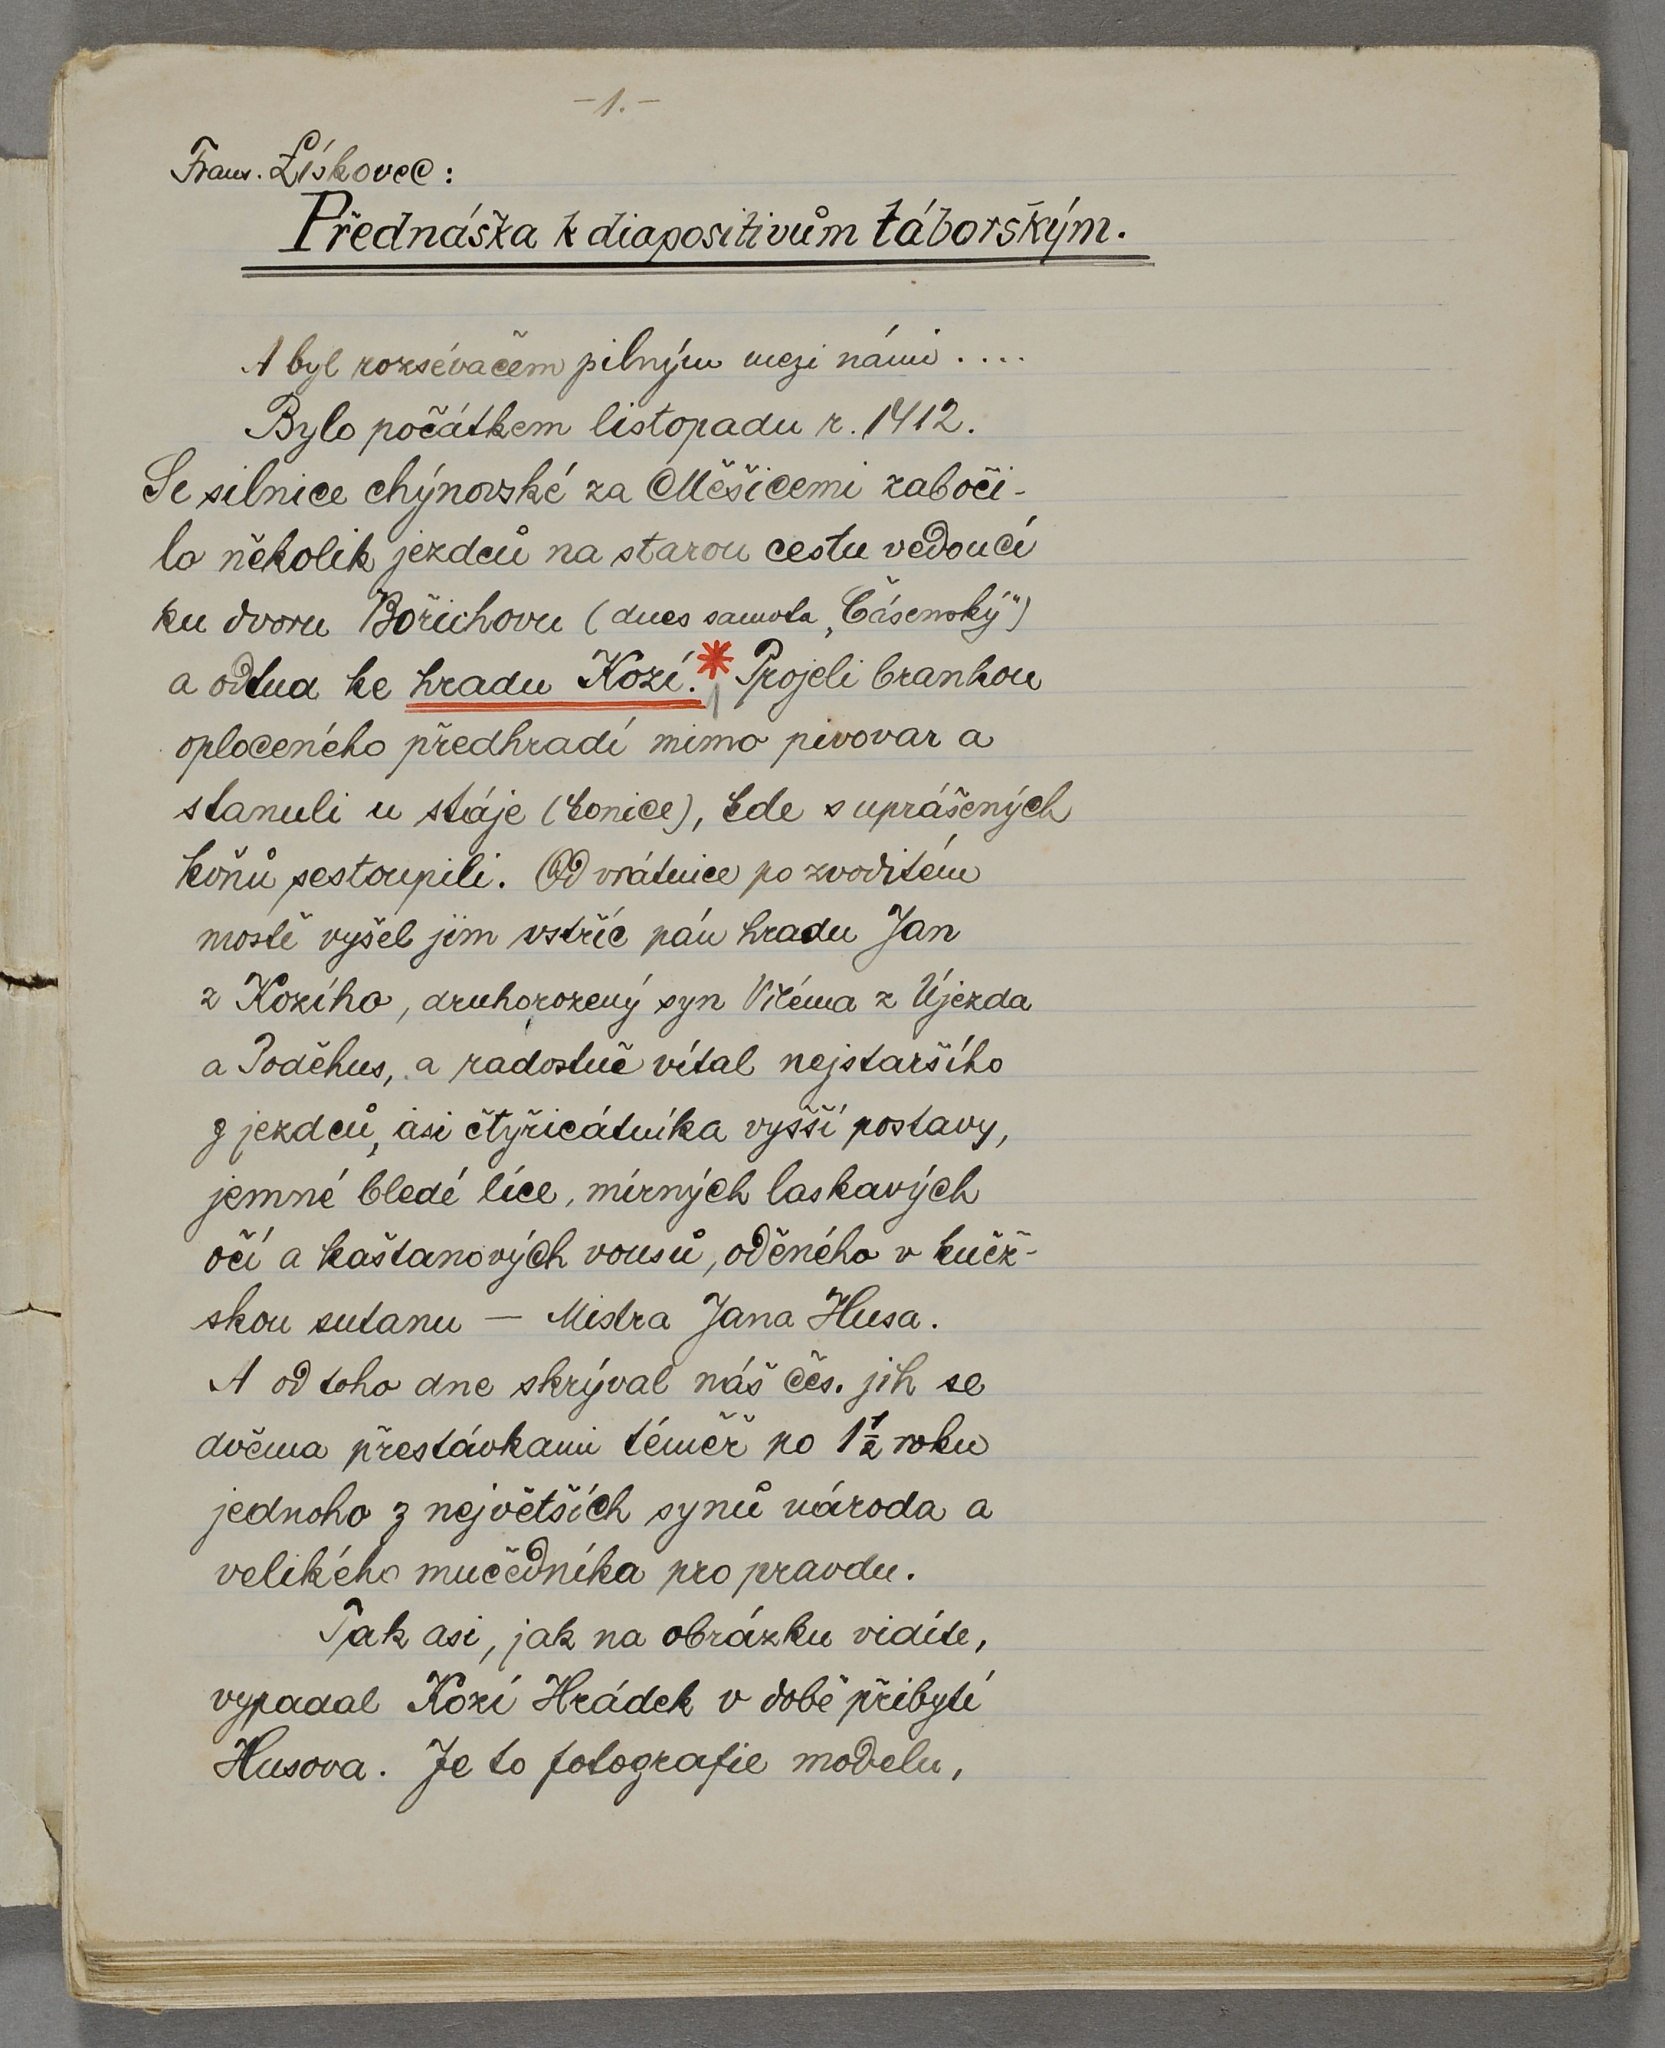 -1.-
Frant. Lískovec:
Přednáška k diapositivům táborským.
A byl rozsévačem pilným mezi námi....
Bylo počátkem listopadu r. 1412.
Se silnice chýnovské za Měšicemi zaboči-
lo několik jezdců na starou cestu vedoucí
ku dvoru Bořichovu (dnes samota „Čásenský")
a odtud ke hradu Kozí.* Projeli brankou
oploceného předhradí mimo pivovar a
stanuli u stáje (konice), kde s uprášených
koňů sestoupili. Od vrátnice po zvoditém
mostě vyšel jim vstříc pán hradu Jan
z Kozího, druhorozený syn Viléma z Újezda
a Poděhus, a radostně vítal nejstaršího
z jezdců, asi čtyřicátníka vyšší postavy,
jemné bledé líce, mírných laskavých
očí a kaštanových vousů, oděného v kněž-
skou sutanu — Mistra Jana Husa.
A od toho dne skrýval náš čes. jih se
dvěma přestávkami téměř po 1½ roku
jednoho z největších synů národa a
velikého mučedníka pro pravdu.
Tak asi, jak na obrázku vidíte,
vypadal Kozí Hrádek v době přibytí
Husova. Je to fotografie modelu,